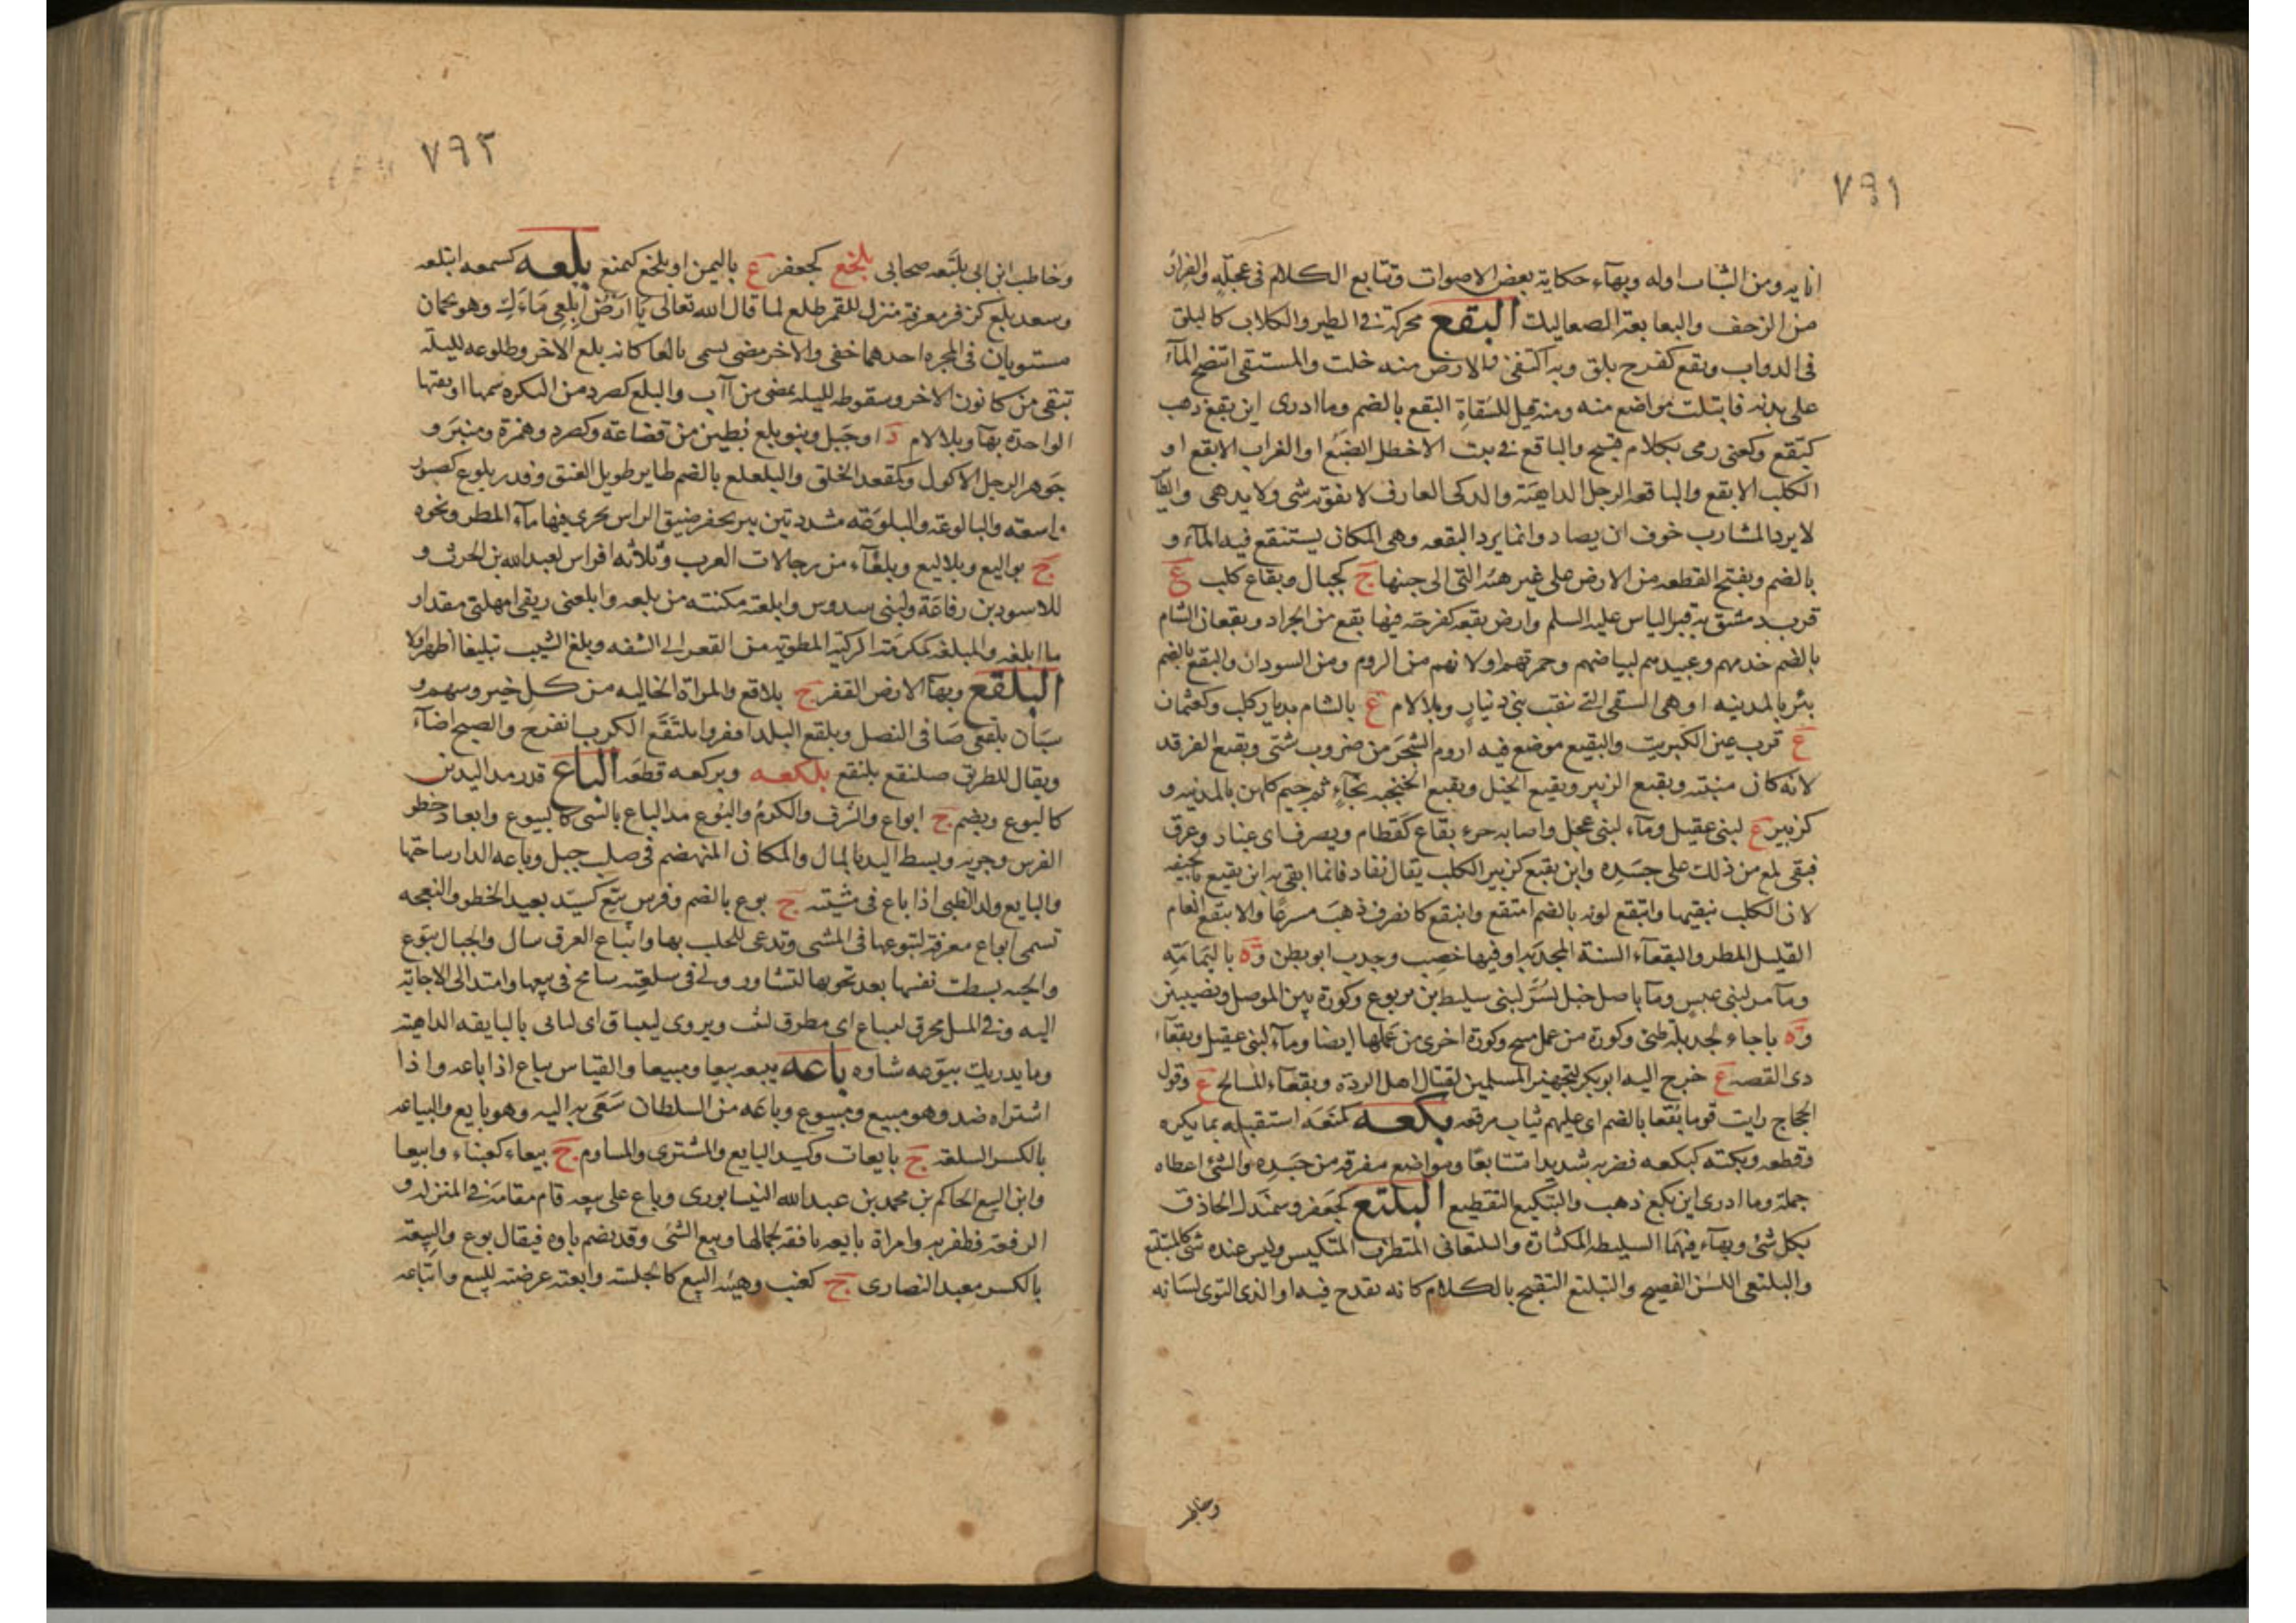 ٧٩١
انايه ومن الشباب اوله وبهآء حكاية بعض الاصوات وتتابع الكلام فى عجلة والفرار
من الزحف والبعابعة الصعاليك البقع محركة فى الطير والكلاب كالبلق
فى الدواب وبقع كفرح بلق وبه اكتفى والارض منه خلت والمستقى انتضح المآء
على بدنه فابتلت مواضع منه ومنه قيل للسقاة البقع بالضم وما ادرى اين بقع ذهب
كبقع وكعنى رمى بكلام قبيح والباقع فى بيت الاخطل الضبع او الغراب الابقع او
الكلب الابقع والباقعه الرجل الداهية والذكى العارف لا يفوته شى ولا يدهى والطائر
لا يرد المشارب خوف ان يصاد وانما يرد البقعه وهى المكان يستنقع فيه المآء و
بالضم وبفتح القطعه من الارض على غير هيئة التى الى جنبها ج كجبال وبقاع كلب ع
قرب دمشق به قبر الياس عليه السلم وارض بقعه كفرحة فيها بقع من الجراد وبقعان الشام
بالضم خدمهم وعبيدهم لبياضهم وحمرتهم او لانهم من الروم ومن السودان والبقع بالضم
بئر بالمدينه او هى السقى التى بنقب بنى دينار وبلا لام ع بالشام بديار كلب وكعثمان
ع قرب عين الكبريت والبقيع موضع فيه اروم الشجر من ضروب شتى وبقيع الفرقد
لانه كان منبته وبقيع الزبير وبقيع الخيل وبقيع الخبجبه بخآء ثم جيم كلهن بالمدينه و
كزبير ع لبنى عقيل ومآء لبنى عجل واصابه خرء بقاع كقطام ويصرف اى غبار وعرق
فبقى لمع من ذلك على جسده وابن بقيع كزبير الكلب يقال تقاذفا بما ابقى ابن بقيع بجيفه
لان الكلب يبقيها وابتقع لونه بالضم امتقع وانبقع كانصرف ذهب مسرعا والابقع العام
القليل المطر والبقعآء السنة المجدبه او فيها خصب وجدب ابو بطن وة باليمامة
ومآء مر لبنى عبس ومآء باصل جبل بسر لبنى سليط بن يربوع وكورة بين الموصل ونصيبين
وة باجاء لجديلة طيئ وكورة من عمل منبج وكورة اخرى من عملها ايضا ومآء لبنى عقيل وبقعآء
ذى القصه ع خرج اليه ابو بكر لتجهيز المسلمين لقتال اهل الردة وبقعآء المسالح ع وقول
الحجاج رايت قوما بقعا بالضم اى عليهم ثياب مرقعه بكعه كمنعه استقبله بما يكره
وقطعه وبكته كبكعه فضربه شديدا متتابعا ومواضع متفرقه من جسده والشئ اعطاه
جملة وما ادرى اين بكع ذهب والتبكيع التقطيع البلتع كجعفر وسمندل الحاذق
بكل شئ وبهآء فيهما السليطه المكثارة والبلتعانى المتظرف المتكيس وليس عنده شى كالمتبلتع
والبلتعى اللسن الفصيح والتبلتع التفتح بالكلام كانه يقدح فيه او الذى التوى لسانه
وخاطب
٧٩٢
وخاطب ابن ابى بلتعه صحابى بلخع كجعفر ع باليمن او يلخع كيمنع بلعه كسمعه ابتلعه
وسعد بلع كزفر معرفة منزل للقمر طلع لما قال الله تعالى يا ارض ابلعى ماءك وهو نجمان
مستويان فى المجره احدهما خفى والاخر مضى يسمى بالعا كانه بلع الاخر وطلوعه لليلة
تبقى من كانون الاخر وسقوطه لليلة يمضى من آب والبلع كصرد من البكره سمها او ثقبها
الواحدة بهآء وبلا لام د او جبل وبنو بلع بطين من قضاعة وكصرد وهمزة ومنبر و
جوهر الرجل الاكول وكمقعد الحلق والبلعلع بالضم طاير طويل العنق وقدر بلوع كصبور
واسعة والبالوعة والبلوعه مشددتين بير يحفر ضيق الراس يجرى فيها مآء المطر ونحوه
ج بواليع وبلاليع وبلعآء من رجالات العرب وثلاثه افراس لعبد الله بن الحرث و
للاسود بن رفاعة ولبنى سدوس وابلعته مكنته من بلعه وابلعنى ريقى امهلنى مقدار
ما ابلغه والمبلعه كمكرمة الركية المطويه من القعر الى الشفه وبلع الشيب تبليعا اظهر اولا
البلقع وبهآء الارض القفر ج بلاقع والمراة الخاليه من كل خير وسهم و
سنان بلقعى صافى النصل وبلقع البلد اقفر وابلنقع الكرب انفرج والصبح اضآء
ويقال للطريق صلنقع بلنقع بلكعه وبركعه قطعه الباع قدر مد اليدين
كالبوع ويضم ج ابواع والشرف والكرم والبوع مد الباع بالشى كالبيوع وابعاد خطو
الفرس وجريه وبسط اليد بالمال والمكان المنهضم فى صلب جبل وباعه الدار ساحتها
والبايع ولد الظبى اذا باع فى مشيته ج بوع بالضم وفرس بيع كسيد بعيد الخطو والنعجه
تسمى ابواع معرفة لتبوعها فى المشى وتدعى للحلب بها وانباع العرق سال والجبال تبوع
والحيه بسطت نفسها بعد تحويها لتساور ولى فى سلعته سامح فى بيعها وامتد الى الاجابة
اليه وفى المثل مخرنق لينباع اى مطرق ليثب ويروى لينباق اى لياتى بالبايقه الداهية
وما يدريك ببوعه شاوه باعه يبيعه بيعا ومبيعا والقياس مباع اذا باعه واذا
اشتراه ضد وهو مبيع ومبيوع وباعه من السلطان سعى به اليه وهو بايع والبياعه
بالكسر السلعة ج بايعات وكسيد البايع والمشترى والمساوم ج بيعاء كعنباء وابيعا
وابن البيع الحاكم بن محمد بن عبد الله النيسابورى وباع على بيعه قام مقامه فى المنزله و
الرفعة فظفر به وامراة بايعه نافقه لجمالها وبيع الشى وقد يضم باوه فيقال بوع والبيعة
بالكسر معبد النصارى ج كعنب وهيئة البيع كالجلسة وابعته عرضته للبيع وابتاعه